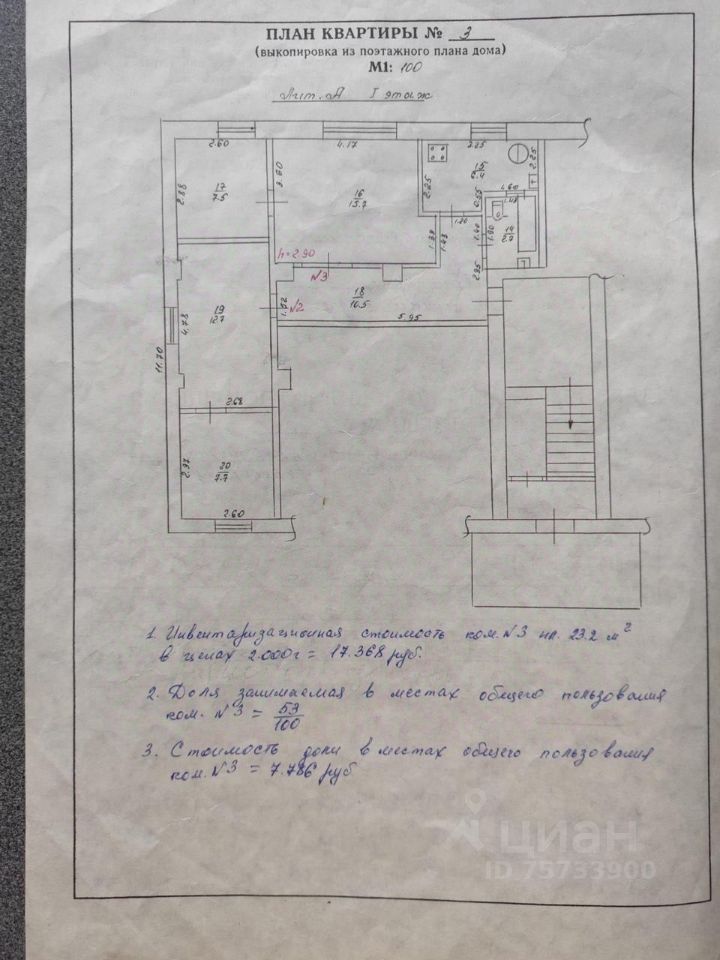 ПЛАН КВАРТИРЫ № 3
(выкопировка из поэтажного плана дома)
М1: 100
Лит. А I этаж
2.60
4.17
2.25
2.88
17
7.5
3.80
16
15.7
2.25
15
8.4
2.25
0.55
1.60
1.48
1.20
14
2.7
1.90
1.40
1.39
1.43
2.95
h=2.90
№3
18
10.5
1.92
№2
5.95
19
12.7
4.78
11.70
2.68
2.97
20
7.7
2.60
1. Инвентаризационная стоимость ком. №3 пл. 23.2 м²
в ценах 2.000г = 17.368 руб.
2. Доля занимаемая в местах общего пользования
ком. №3 = 53
100
3. Стоимость доли в местах общего пользования
ком. №3 = 7.786 руб
циан
ID 75733900